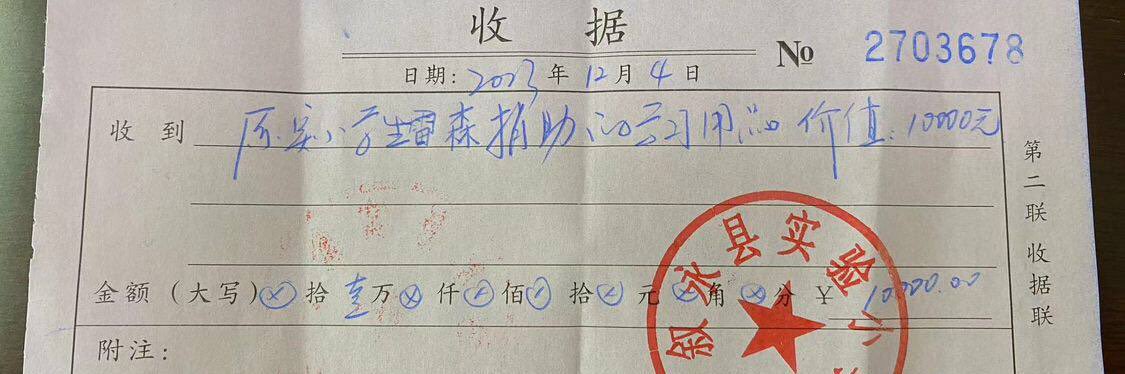 收据
№ 2703678
日期: 2023年12月4日
收到 原实小学生雷森捐助的学习用品 价值: 10000元
金额(大写)⊗拾壹万⊗仟⊗佰⊗拾⊗元⊗角⊗分 ¥ 10000.00
附注:
第二联 收据联
叙永县实验小